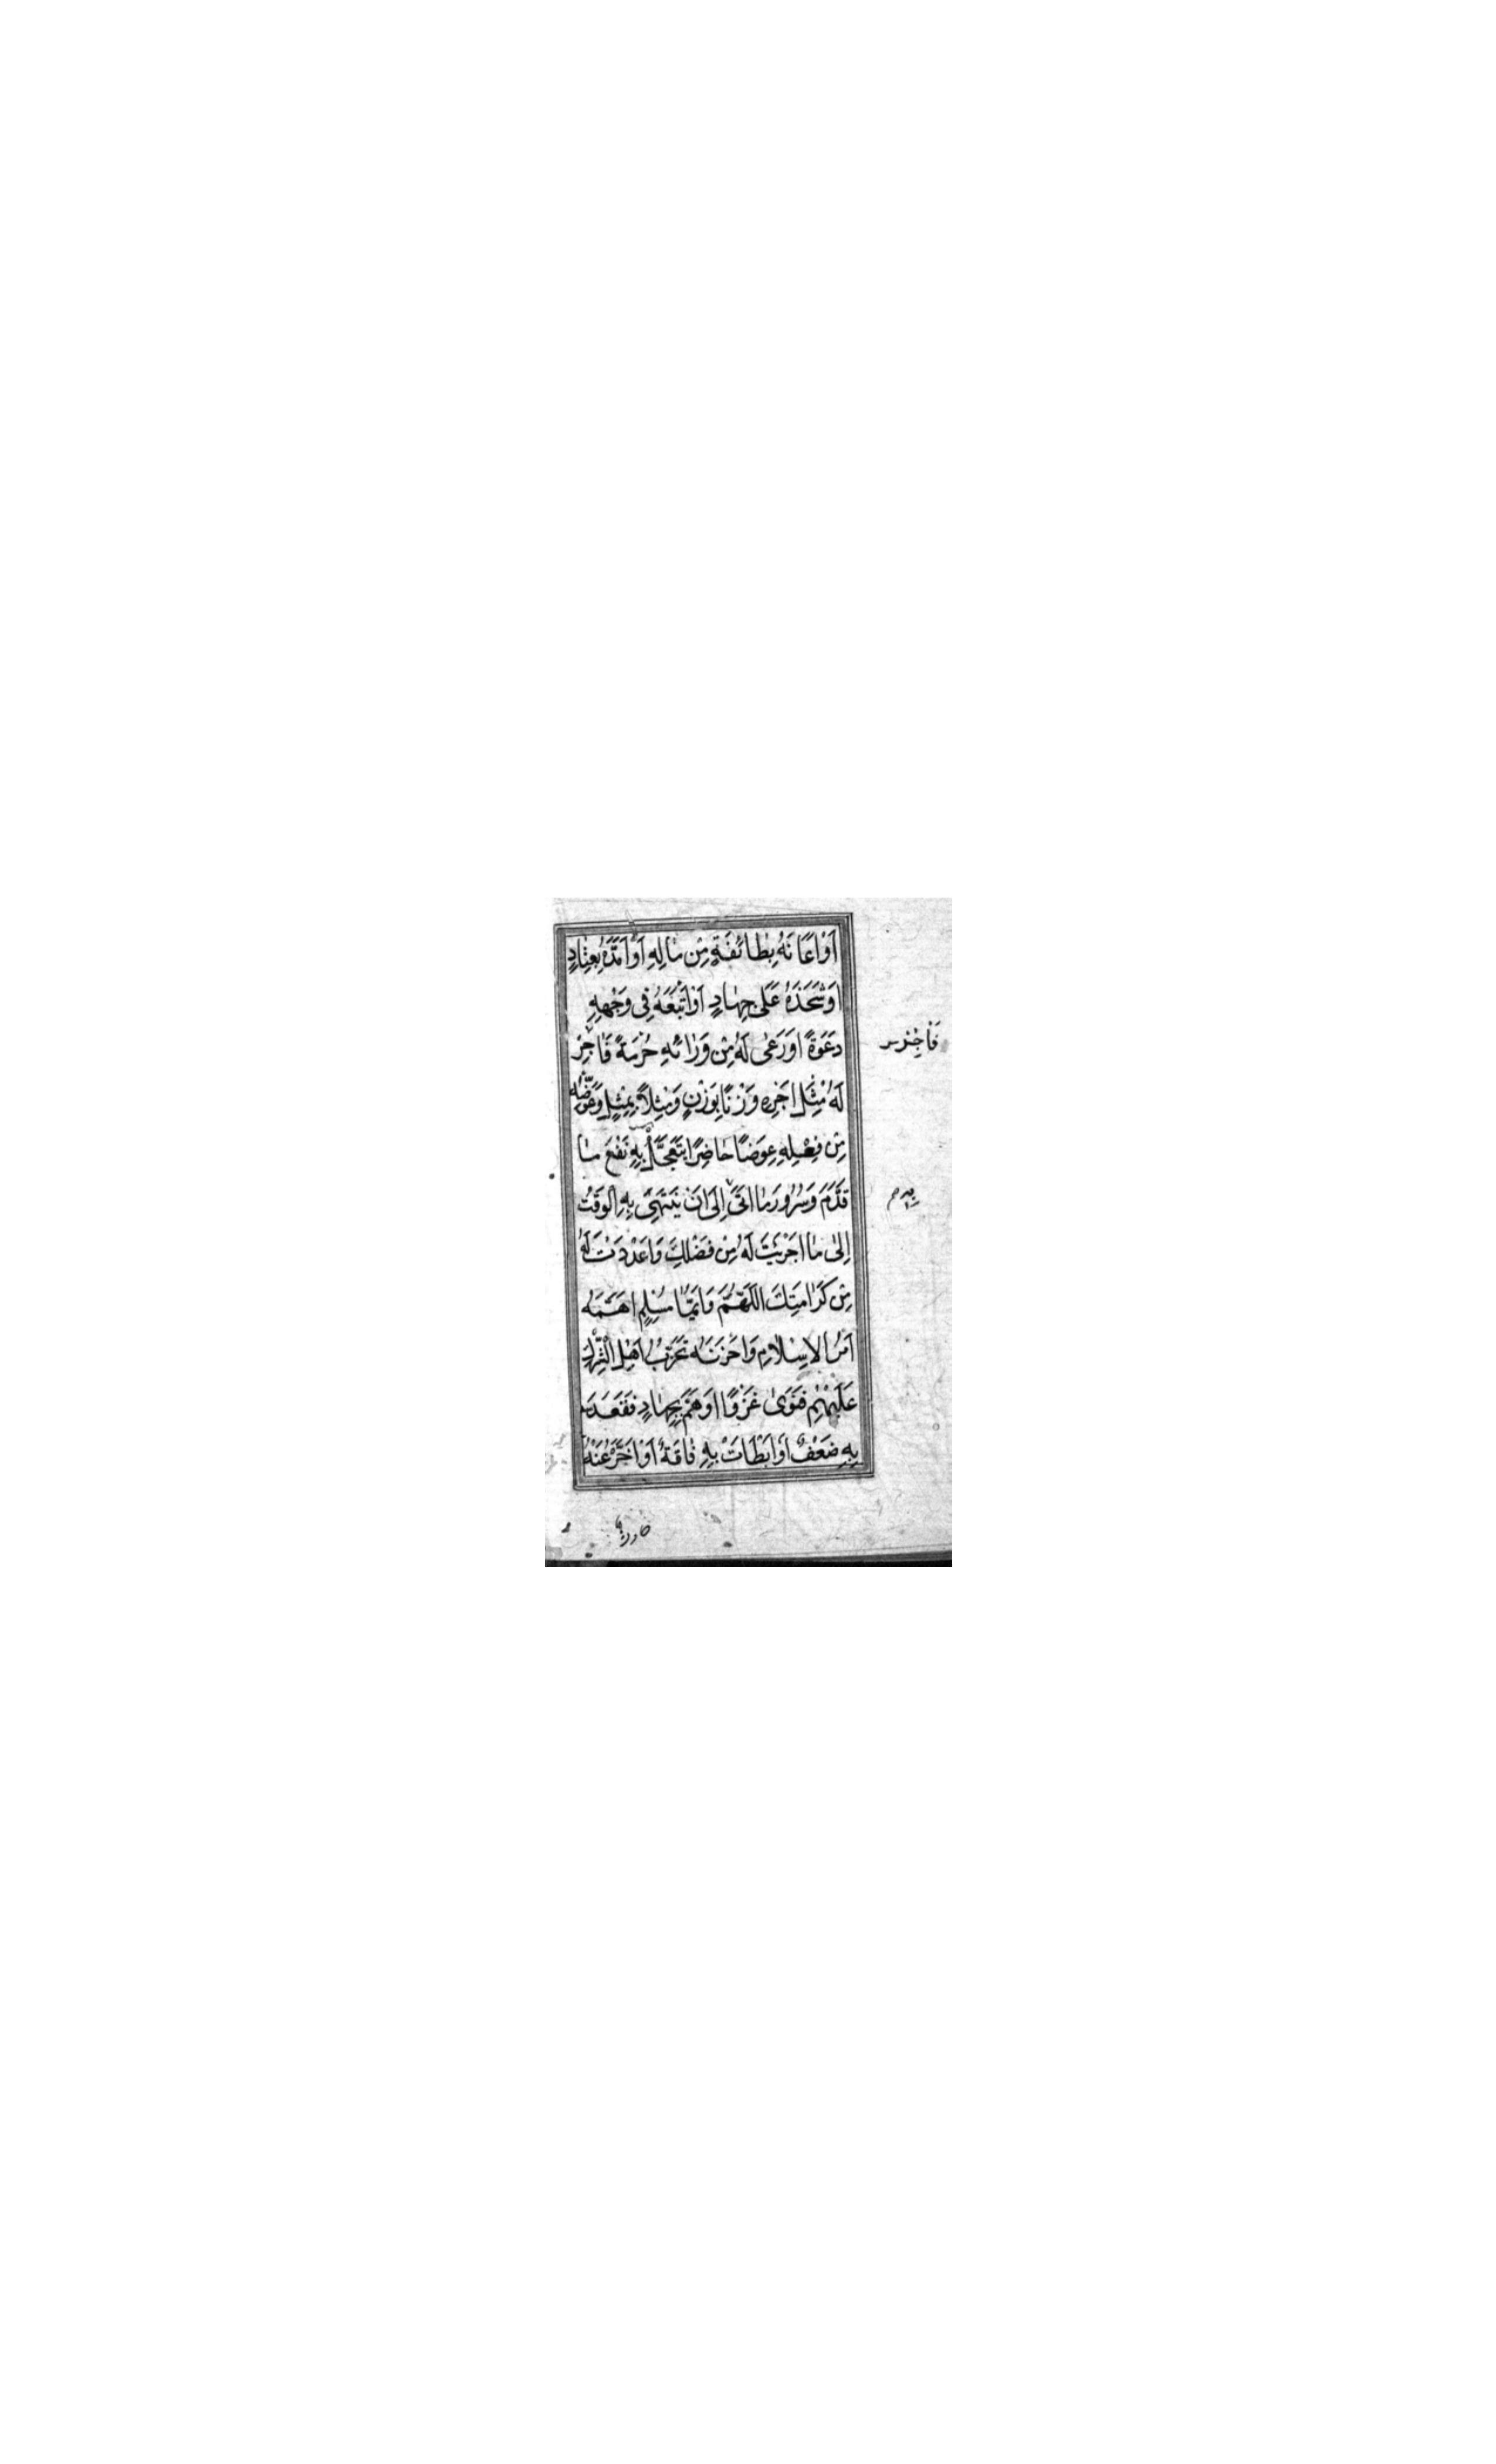 اَوْ اَعَانَهُ بِطَائِفَةٍ مِنْ مَالِهِ اَوْ اَمَدَّهُ بِعِتَادٍ
اَوْ شَحَذَهُ عَلَى جِهَادٍ اَوْ اَتْبَعَهُ فِي وَجْهِهِ
دَعْوَةً اَوْ رَعَى لَهُ مِنْ وَرَائِهِ حُرْمَةً فَاَجِرْ
لَهُ مِثْلَ اَجْرِهِ وَزْنًا بِوَزْنٍ وَمِثْلًا بِمِثْلٍ وَعَوِّضْهُ
مِنْ فِعْلِهِ عِوَضًا حَاضِرًا يَتَعَجَّلُ بِهِ نَفْعَ مَا
قَدَّمَ وَسُرُورَ مَا اَتَى اِلَى اَنْ يَنْتَهِيَ بِهِ الْوَقْتُ
اِلَى مَا اَجْرَيْتَ لَهُ مِنْ فَضْلِكَ وَاَعْدَدْتَ لَهُ
مِنْ كَرَامَتِكَ اَللّٰهُمَّ وَاَيُّمَا مُسْلِمٍ اَهَمَّهُ
اَمْرُ الْاِسْلَامِ وَاَحْزَنَهُ تَحَزُّبُ اَهْلِ الشِّرْكِ
عَلَيْهِمْ فَنَوَى غَزْوًا اَوْ هَمَّ بِجِهَادٍ فَقَعَدَ
بِهِ ضَعْفٌ اَوْ اَبْطَاَتْ بِهِ فَاقَةٌ اَوْ اَخَّرَهُ عَنْهُ